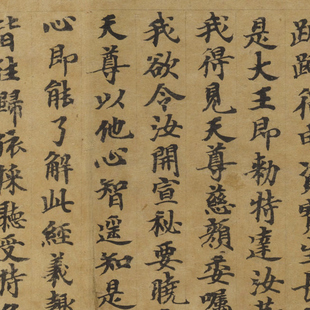 由資寶生長
是大王即勅特達汝
我得見天尊慈顏委囑
我欲令汝開宣秘要曉
天尊以他心智遥知是
心即能了解此經義趣
皆往歸依聽受持